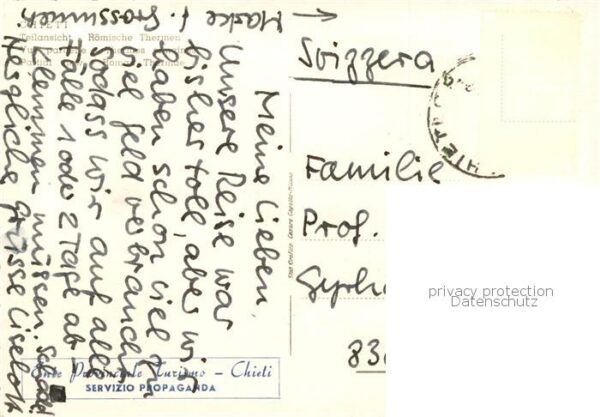 CHIETI
Teilansicht - Römische Thermen
→ Marke f.
Svizzera
Meine Lieben.
Unsere Reise war
bisher toll, aber wir
haben schon viel zu
viel Geld verbraucht
sodass wir auf alle
Fälle 1 oder 2 Tage ab
klemmen müssen. Schade!
Herzliche Grüsse Liselott
Familie
Prof.
830
Ente Provinciale Turismo - Chieti
SERVIZIO PROPAGANDA
privacy protection
Datenschutz